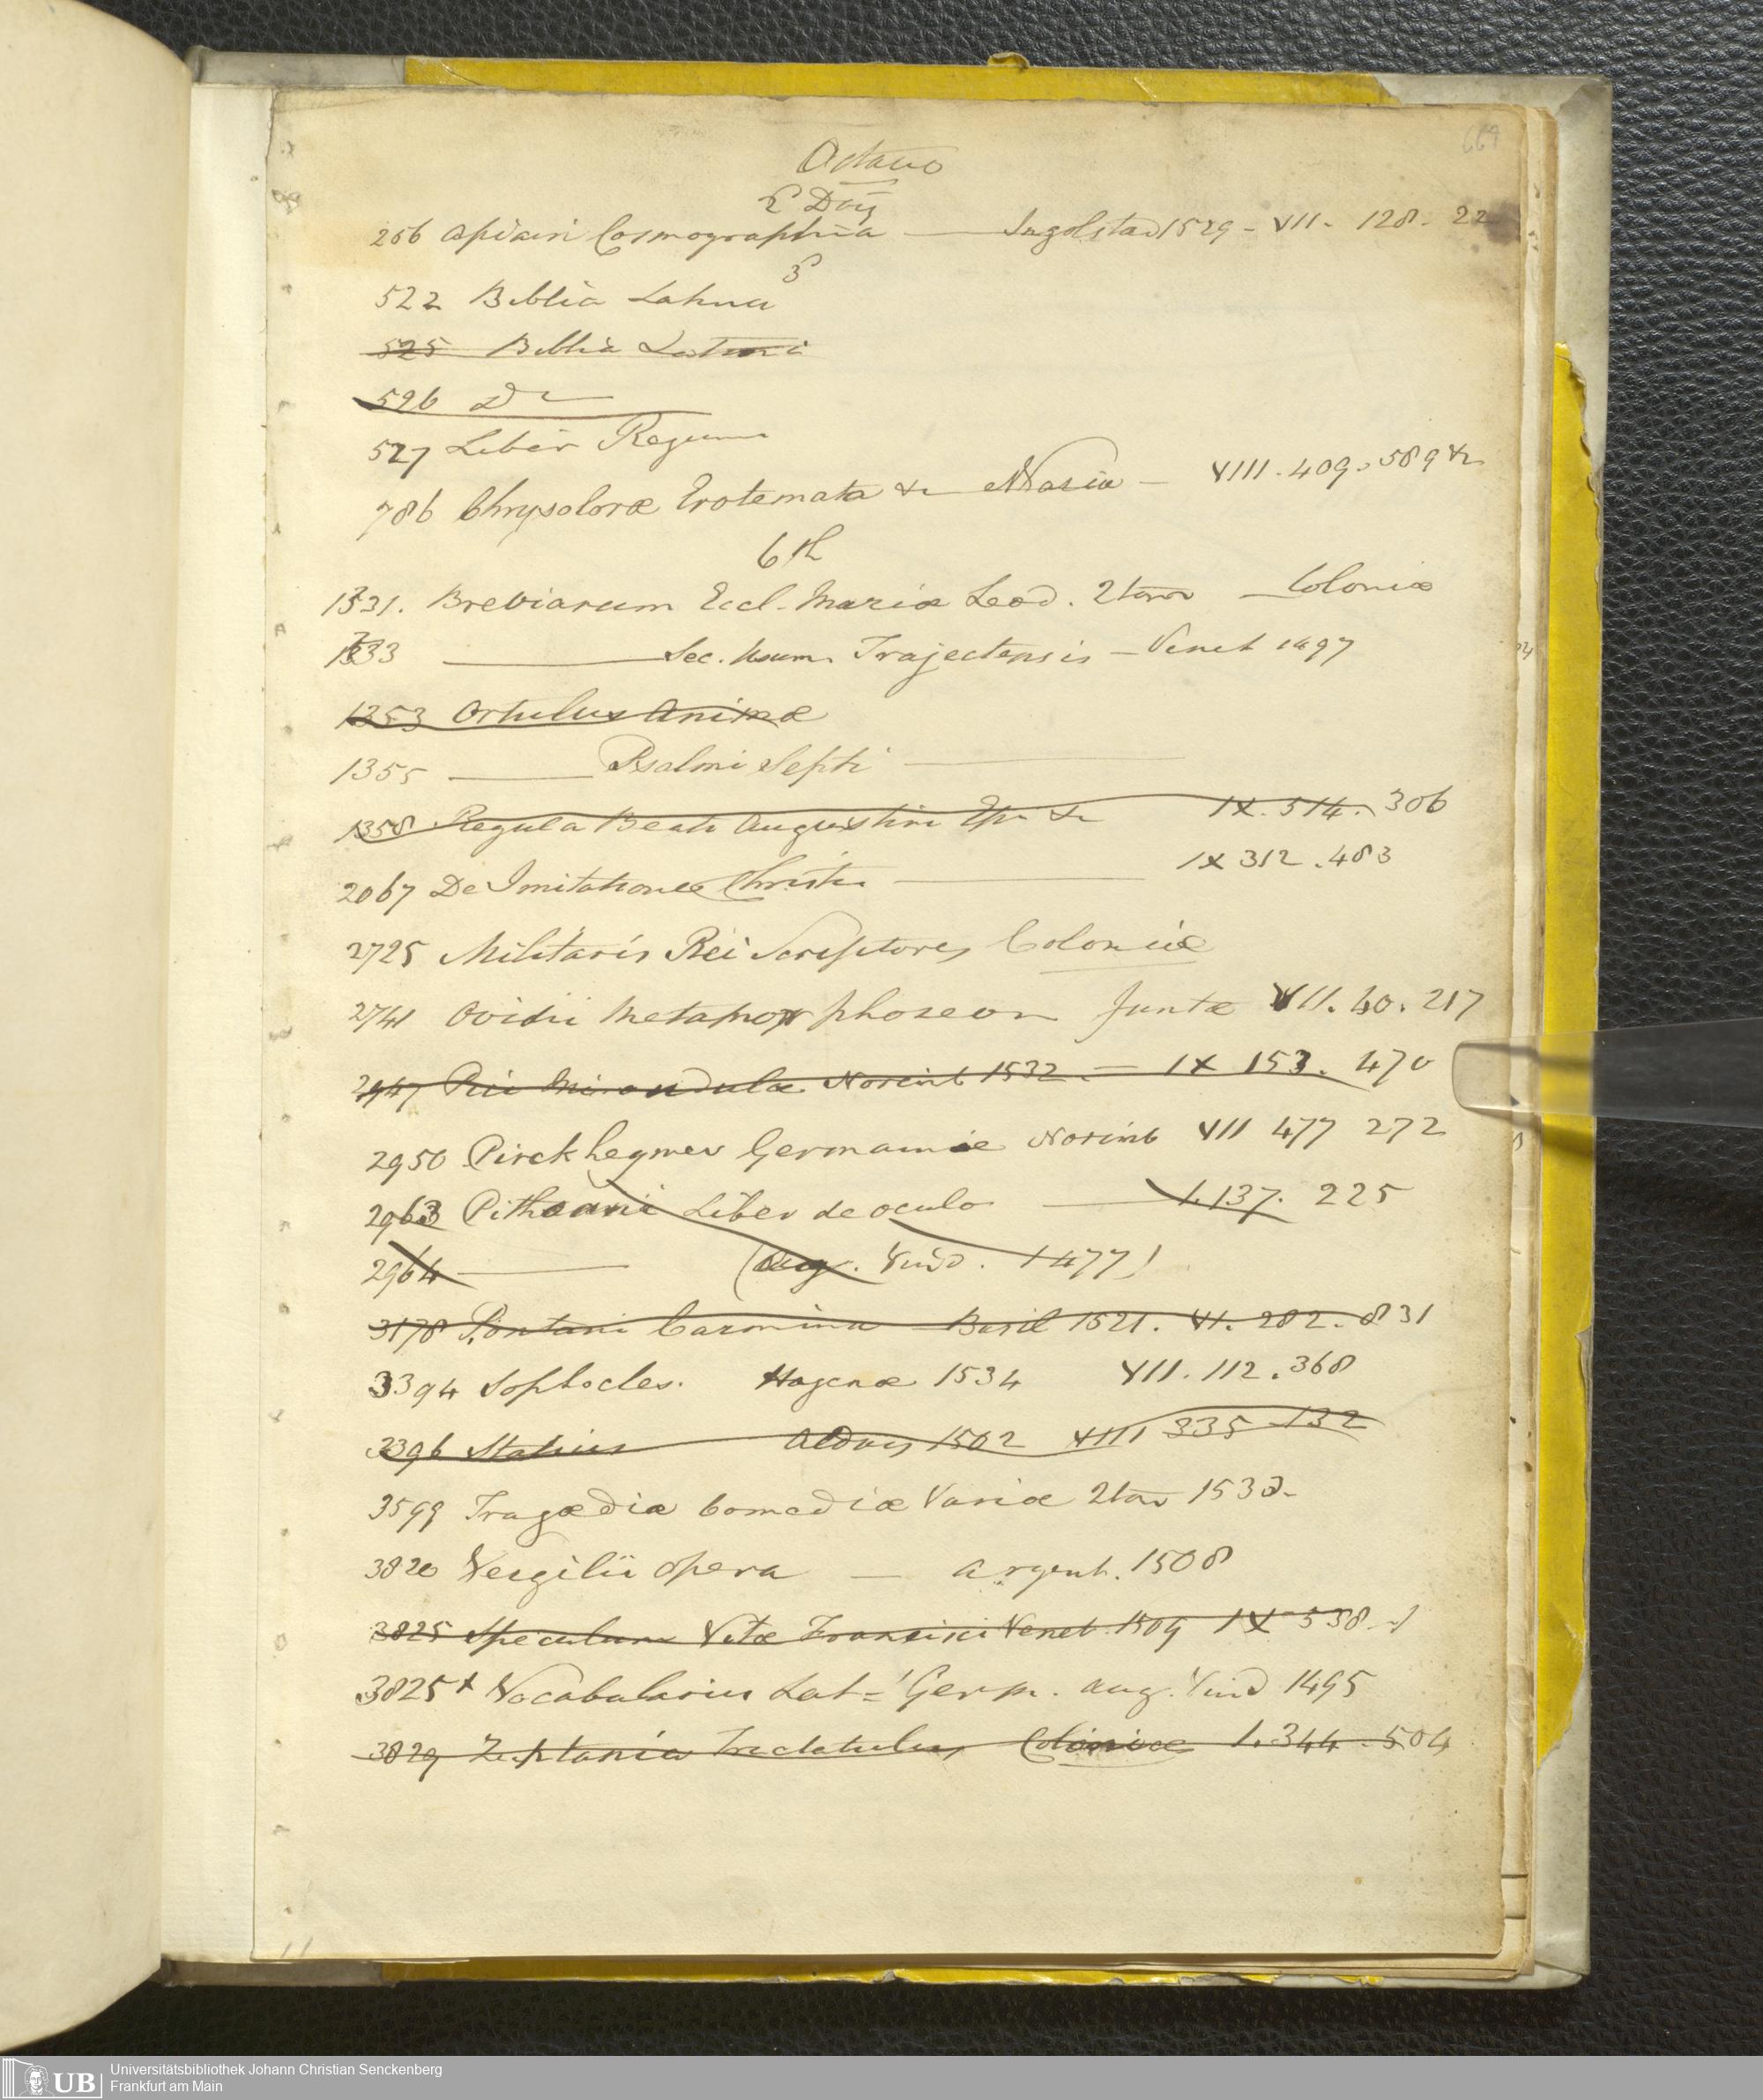 669
Octavo
2 Day
256 Apiani Cosmographia — Ingolstad 1529 - VII. 128. 22
3
522 Biblia Latina
525 Biblia Latina
526 Do
527 Liber Regum
786 Chrysoloræ Erotemata &c — VIII. 409. 589 &c
6th
1331. Breviarum Eccl. Mariæ Leod. 2 tom — Coloniæ
1333 — Sec. Usum. Trajectensis — Venet 1497
1353 Ortulus Animæ
1355 — Psalmi Septi —
1358 Regula Beati Augustini Epi &c IX. 514. 306
2067 De Imitatione Christi — IX 312. 483
2725 Militaris Rei Scriptores Coloniæ
2741 Ovidii Metamorphoseon Juntæ VII. 40. 217
2947 Pici Mirandulæ Norimb 1532. — IX 153. 470
2950 Pirckheymer Germaniæ Norimb VII 477 272
2963 Liber de oculo — 1. 137. 225
2964 — (Aug. Vind. 1477)
3178 Pontani Carmina — Basil 1521. VI. 282. 831
3394 Sophocles. Hagenæ 1534 VII. 112. 368
3396 Statius Aldus 1502 VIII 335 132
3599 Tragædiæ Comediæ Variæ 2 tom
3820 Vergilii Opera — Argent. 1508
3825 Speculum Vitæ Francisci Venet. 1509 IX 538 - 1
3825+ Vocabularius Lat= Germ. Aug. Vind 1495
3829 Tractatulus Coloniæ 1. 344. 504
UB
Universitätsbibliothek Johann Christian Senckenberg
Frankfurt am Main